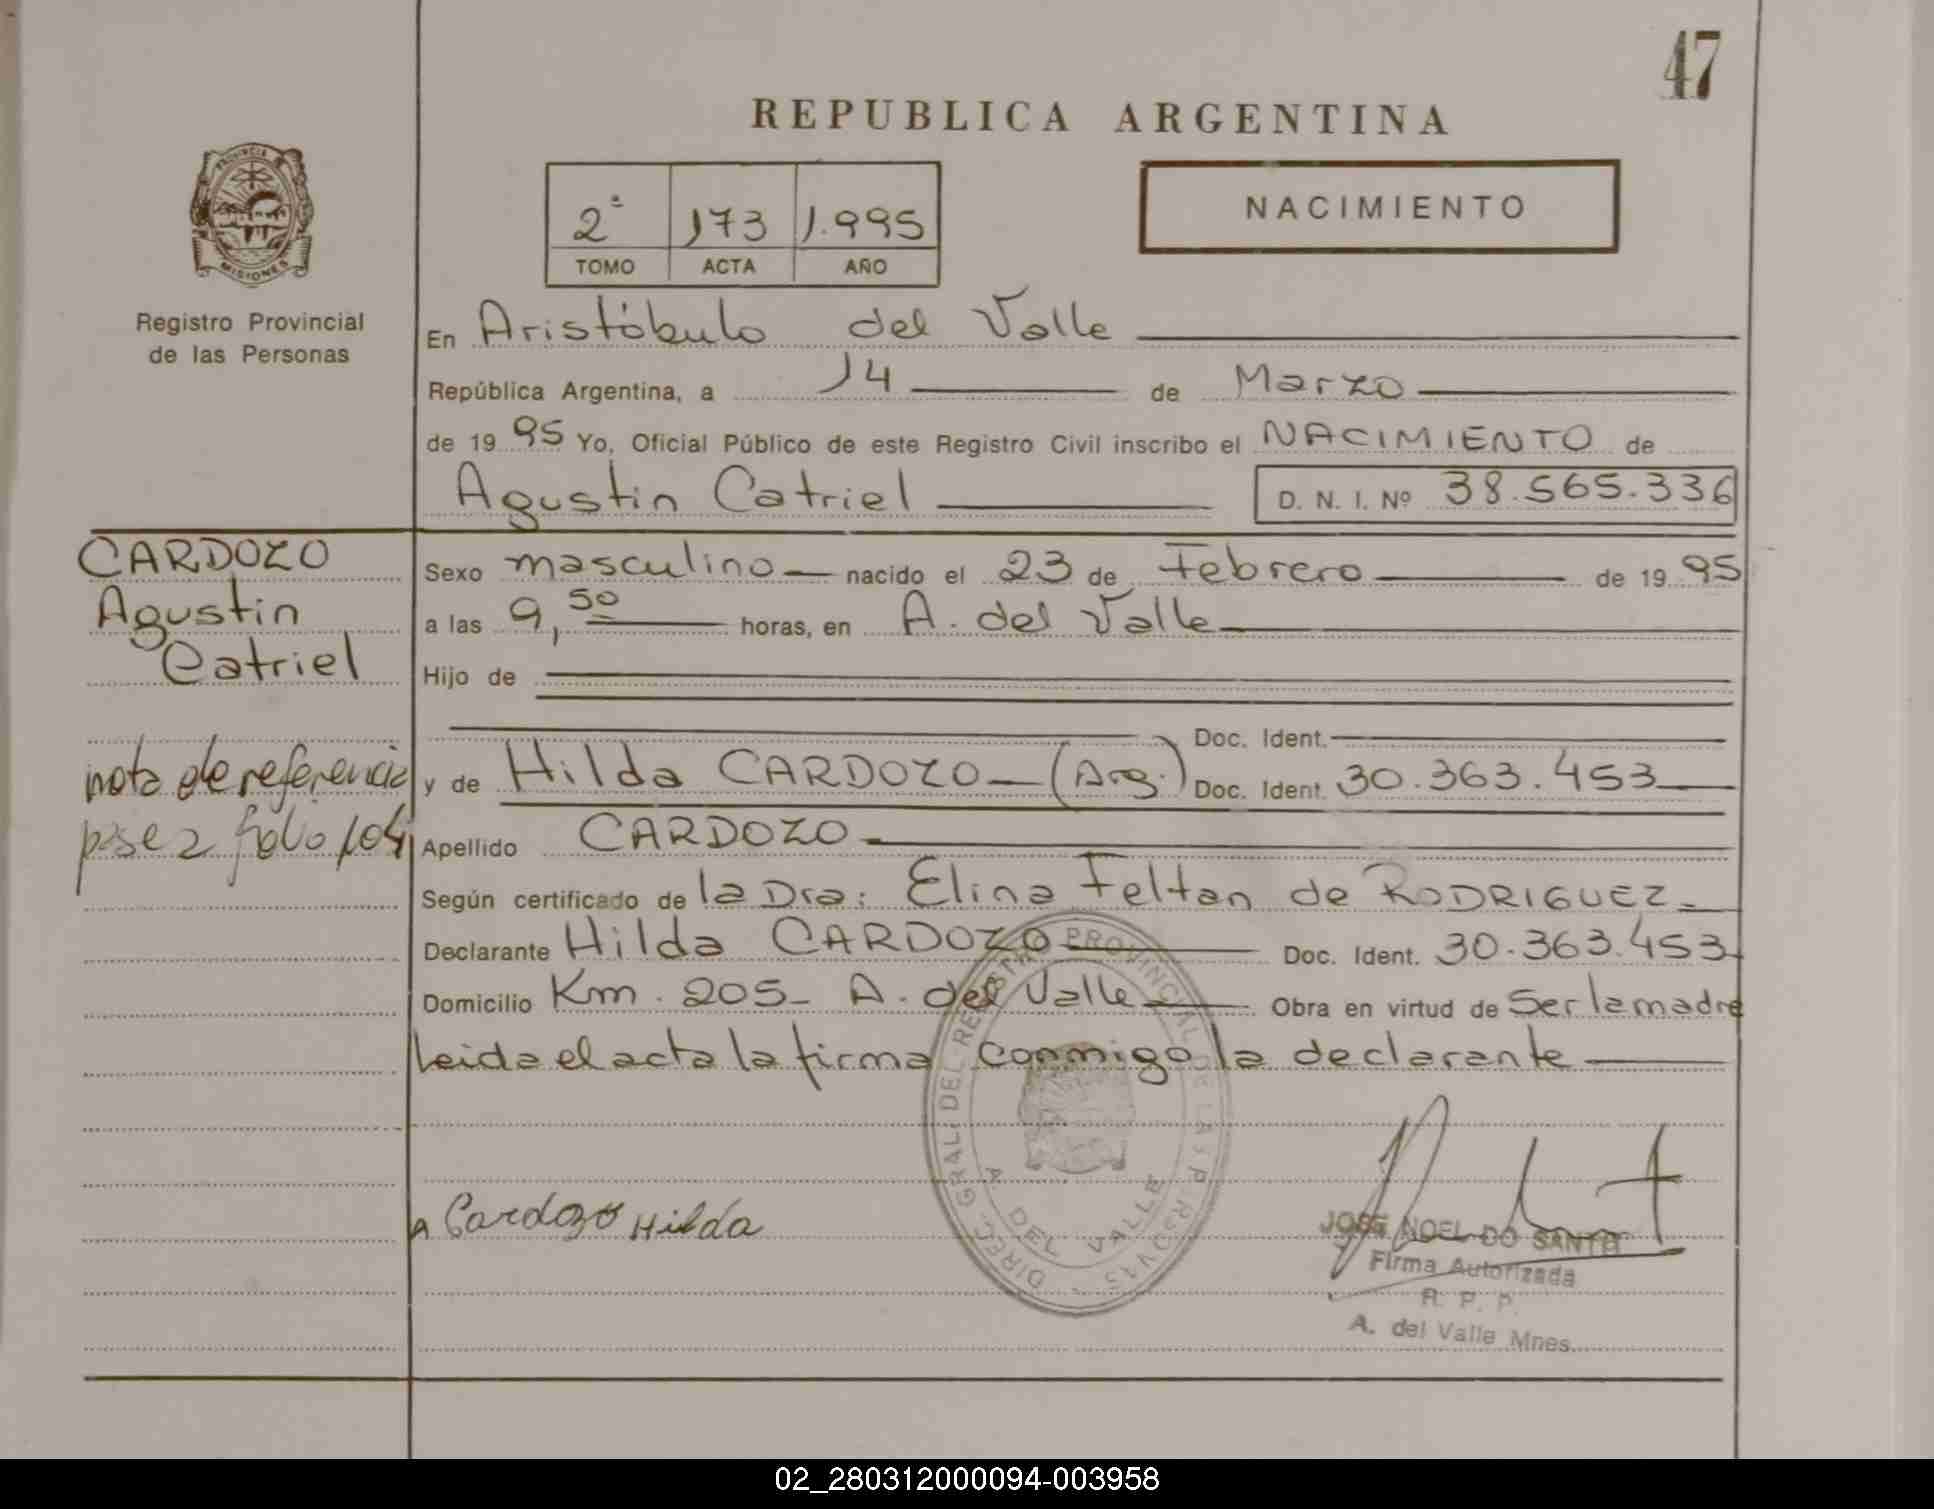 47
REPUBLICA ARGENTINA
PROVINCIA DE
MISIONES
Registro Provincial
de las Personas
2ª 173 1.995
TOMO ACTA AÑO
NACIMIENTO
En Aristóbulo del Valle
República Argentina, a 14 de Marzo
de 1995 Yo, Oficial Público de este Registro Civil inscribo el NACIMIENTO de
Agustin Catriel D. N. I. Nº 38.565.336
CARDOZO
Agustin
Catriel
nota de referencia
pase 2 folio 104
Sexo masculino nacido el 23 de Febrero de 1995
a las 9,50 horas, en A. del Valle
Hijo de
Doc. Ident.
y de Hilda CARDOZO (Arg.) Doc. Ident. 30.363.453
Apellido CARDOZO
Según certificado de la Dra: Elina Feltan de RODRIGUEZ
Declarante Hilda CARDOZO Doc. Ident. 30.363.453
Domicilio Km. 205 - A. del Valle Obra en virtud de Ser la madre
Leida el acta la firma conmigo la declarante
Cardozo Hilda
DIREC. GRAL. DEL REGISTRO PROVINCIAL DE LAS
A. DEL VALLE
JOSE NOEL DO SANTO
Firma Autorizada
R. P. P.
A. del Valle Mnes.
02_280312000094-003958